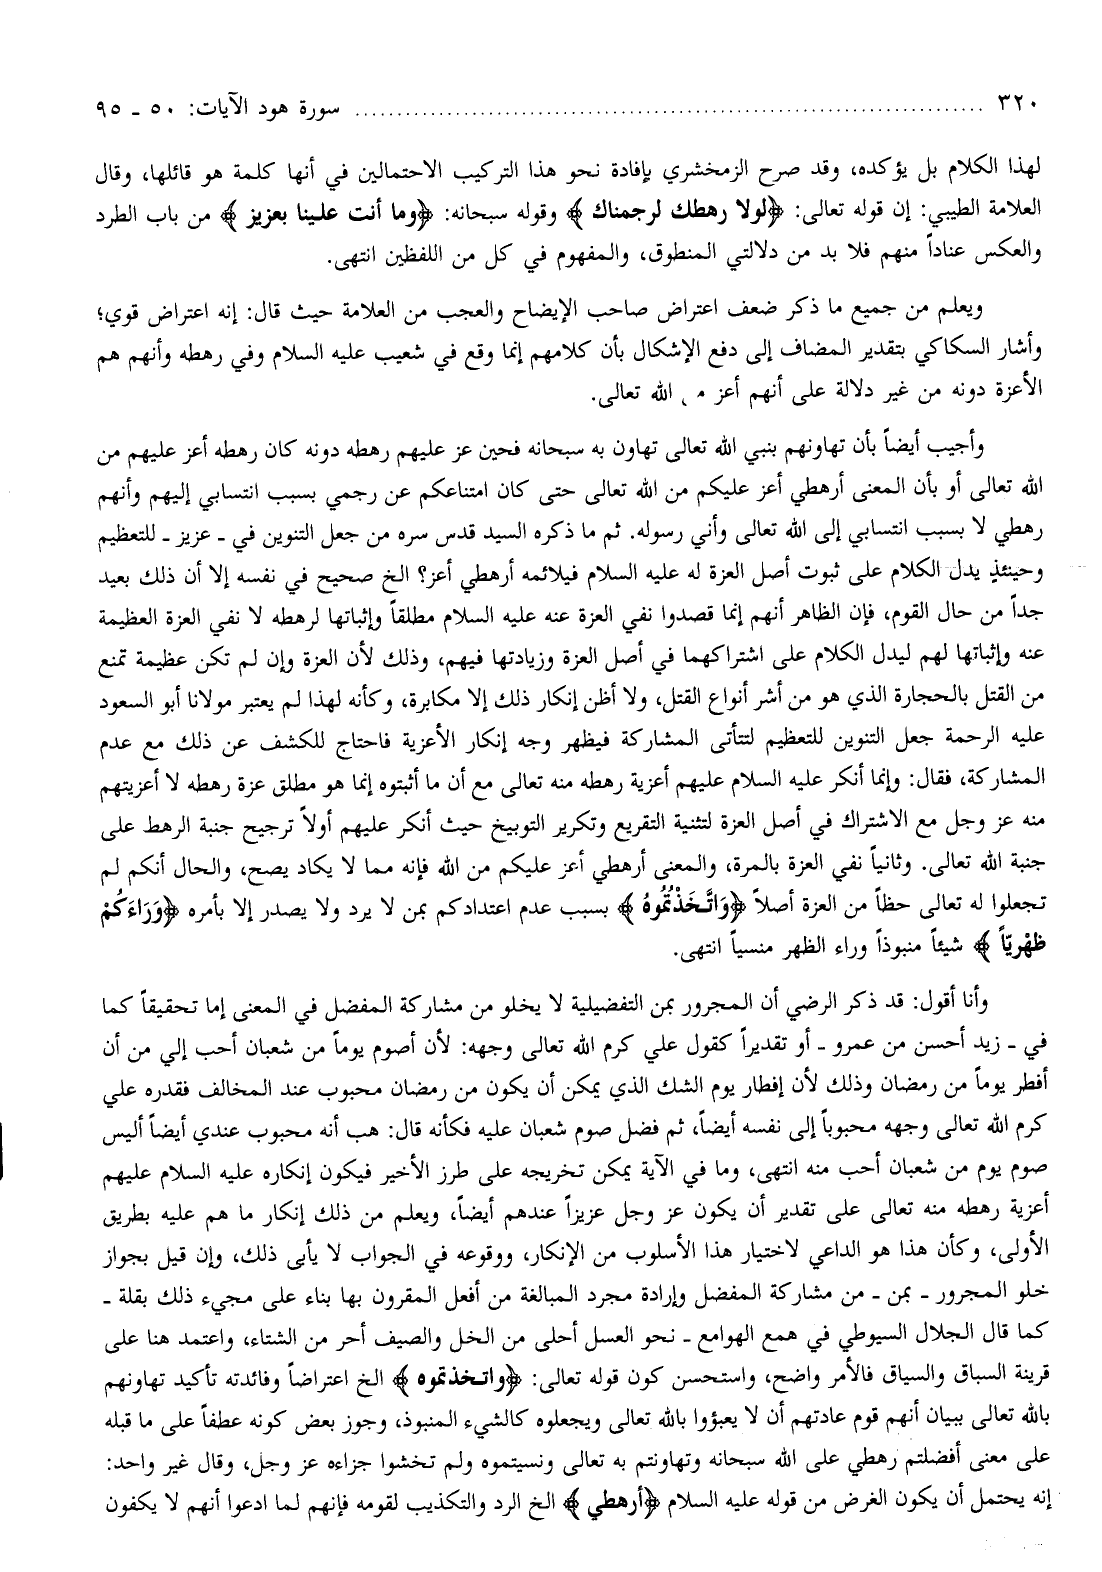 ٣٢٠ ........................................ سورة هود الآيات: ٥٠ ـ ٩٥
لهذا الكلام بل يؤكده، وقد صرح الزمخشري بإفادة نحو هذا التركيب الاحتمالين في أنها كلمة هو قائلها، وقال
العلامة الطيبي: إن قوله تعالى: ﴿لولا رهطك لرجمناك﴾ وقوله سبحانه: ﴿وما أنت علينا بعزيز﴾ من باب الطرد
والعكس عناداً منهم فلا بد من دلالتي المنطوق، والمفهوم في كل من اللفظين انتهى.
ويعلم من جميع ما ذكر ضعف اعتراض صاحب الإيضاح والعجب من العلامة حيث قال: إنه اعتراض قوي؛
وأشار السكاكي بتقدير المضاف إلى دفع الإشكال بأن كلامهم إنما وقع في شعيب عليه السلام وفي رهطه وأنهم هم
الأعزة دونه من غير دلالة على أنهم أعز من الله تعالى.
وأجيب أيضاً بأن تهاونهم بنبي الله تعالى تهاون به سبحانه فحين عز عليهم رهطه دونه كان رهطه أعز عليهم من
الله تعالى أو بأن المعنى أرهطي أعز عليكم من الله تعالى حتى كان امتناعكم عن رجمي بسبب انتسابي إليهم وأنهم
رهطي لا بسبب انتسابي إلى الله تعالى وأني رسوله. ثم ما ذكره السيد قدس سره من جعل التنوين في ـ عزيز ـ للتعظيم
وحينئذٍ يدل الكلام على ثبوت أصل العزة له عليه السلام فيلائمه أرهطي أعز؟ الخ صحيح في نفسه إلا أن ذلك بعيد
جداً من حال القوم، فإن الظاهر أنهم إنما قصدوا نفي العزة عنه عليه السلام مطلقاً وإثباتها لرهطه لا نفي العزة العظيمة
عنه وإثباتها لهم ليدل الكلام على اشتراكهما في أصل العزة وزيادتها فيهم، وذلك لأن العزة وإن لم تكن عظيمة تمنع
من القتل بالحجارة الذي هو من أشر أنواع القتل، ولا أظن إنكار ذلك إلا مكابرة، وكأنه لهذا لم يعتبر مولانا أبو السعود
عليه الرحمة جعل التنوين للتعظيم لتتأتى المشاركة فيظهر وجه إنكار الأعزية فاحتاج للكشف عن ذلك مع عدم
المشاركة، فقال: وإنما أنكر عليه السلام عليهم أعزية رهطه منه تعالى مع أن ما أثبتوه إنما هو مطلق عزة رهطه لا أعزيتهم
منه عز وجل مع الاشتراك في أصل العزة لتثنية التقريع وتكرير التوبيخ حيث أنكر عليهم أولاً ترجيح جنبة الرهط على
جنبة الله تعالى. وثانياً نفي العزة بالمرة، والمعنى أرهطي أعز عليكم من الله فإنه مما لا يكاد يصح، والحال أنكم لم
تجعلوا له تعالى حظاً من العزة أصلاً ﴿وَاتَّخَذْتُمُوهُ﴾ بسبب عدم اعتدادكم بمن لا يرد ولا يصدر إلا بأمره ﴿وَرَاءَكُمْ
ظِهْرِيّاً﴾ شيئاً منبوذاً وراء الظهر منسياً انتهى.
وأنا أقول: قد ذكر الرضي أن المجرور بمن التفضيلية لا يخلو من مشاركة المفضل في المعنى إما تحقيقاً كما
في ـ زيد أحسن من عمرو ـ أو تقديراً كقول علي كرم الله تعالى وجهه: لأن أصوم يوماً من شعبان أحب إلي من أن
أفطر يوماً من رمضان وذلك لأن إفطار يوم الشك الذي يمكن أن يكون من رمضان محبوب عند المخالف فقدره علي
كرم الله تعالى وجهه محبوباً إلى نفسه أيضاً، ثم فضل صوم شعبان عليه فكأنه قال: هب أنه محبوب عندي أيضاً أليس
صوم يوم من شعبان أحب منه انتهى، وما في الآية يمكن تخريجه على طرز الأخير فيكون إنكاره عليه السلام عليهم
أعزية رهطه منه تعالى على تقدير أن يكون عز وجل عزيزاً عندهم أيضاً، ويعلم من ذلك إنكار ما هم عليه بطريق
الأولى، وكأن هذا هو الداعي لاختيار هذا الأسلوب من الإنكار، ووقوعه في الجواب لا يأبى ذلك، وإن قيل بجواز
خلو المجرور ـ بمن ـ من مشاركة المفضل وإرادة مجرد المبالغة من أفعل المقرون بها بناء على مجيء ذلك بقلة ـ
كما قال الجلال السيوطي في همع الهوامع ـ نحو العسل أحلى من الخل والصيف أحر من الشتاء، واعتمد هنا على
قرينة السباق والسياق فالأمر واضح، واستحسن كون قوله تعالى: ﴿واتخذتموه﴾ الخ اعتراضاً وفائدته تأكيد تهاونهم
بالله تعالى ببيان أنهم قوم عادتهم أن لا يعبؤوا بالله تعالى ويجعلوه كالشيء المنبوذ، وجوز بعض كونه عطفاً على ما قبله
على معنى أفضلتم رهطي على الله سبحانه وتهاونتم به تعالى ونسيتموه ولم تخشوا جزاءه عز وجل، وقال غير واحد:
إنه يحتمل أن يكون الغرض من قوله عليه السلام ﴿أرهطي﴾ الخ الرد والتكذيب لقومه فإنهم لما ادعوا أنهم لا يكفون